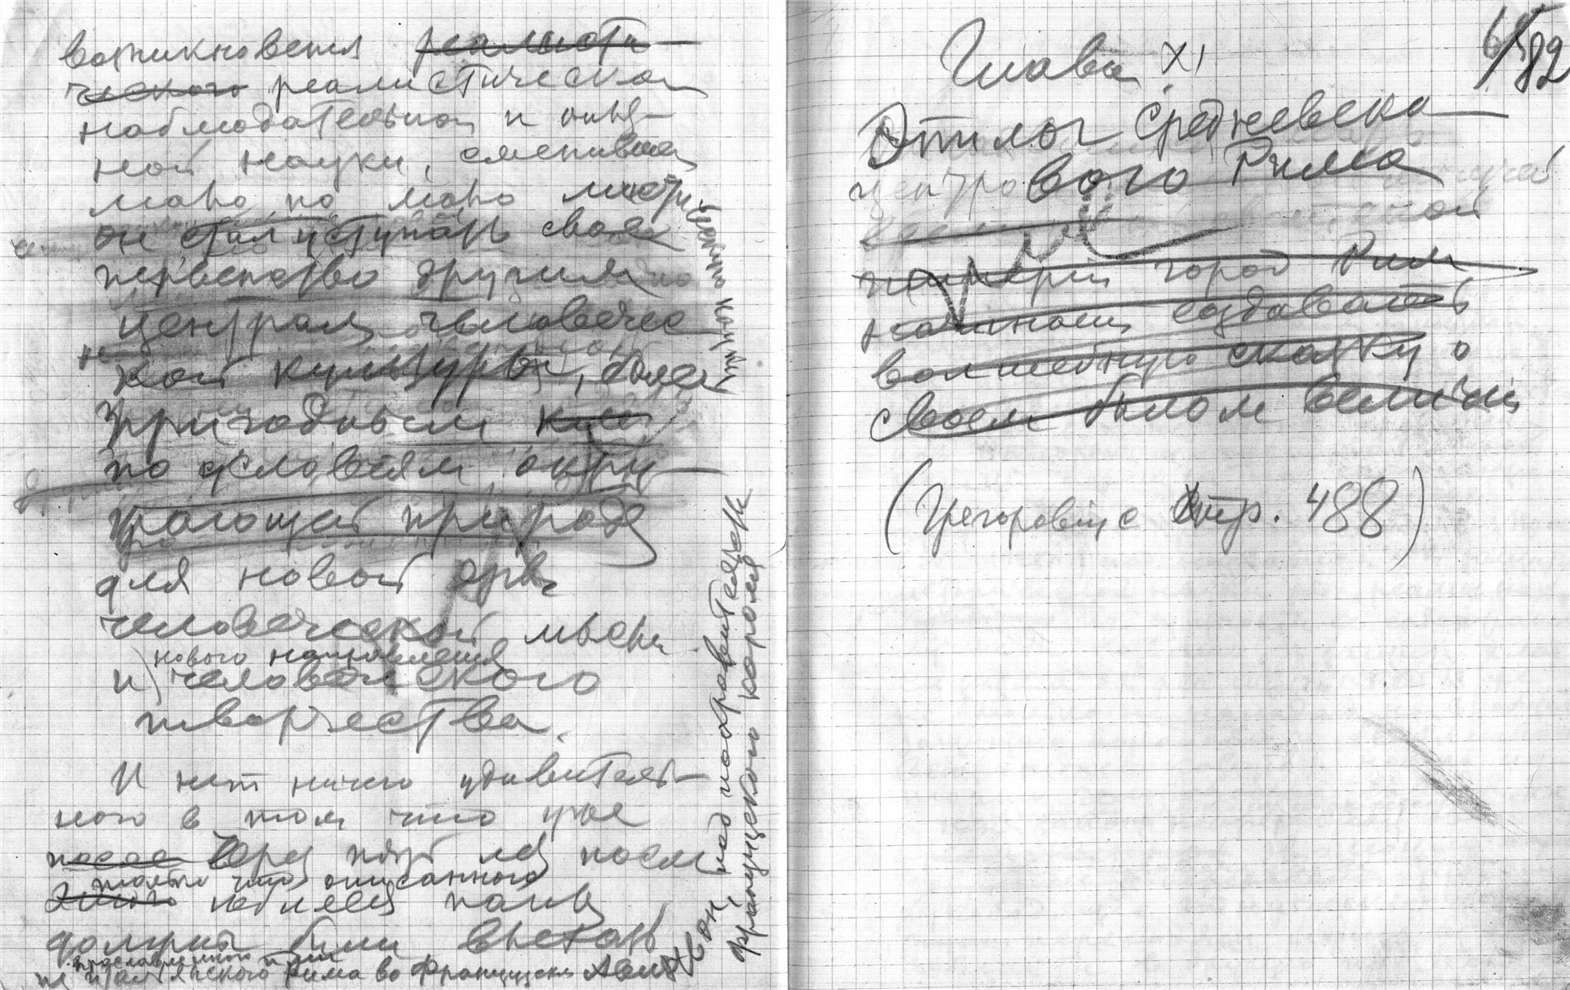 возникновения реалисти-
ческого реалистической
наблюдательной и опыт-
ной науки, сменившей
мало по мало мистическую науку
он стал уступать свое
первенство другим
центрам человечес
кой культуры, более
пригодным
по условиям окру-
жающей природы
для новой эры
человеческой мысли
нового направления
и человеческого
творчества.
И нет ничего удивитель-
ного в том что уже
после через пять лет после
только что описанного
этого юбилея папы
должны были выехать
прославленного ими
из итальянского Рима во французский Авиньон, под покровительство
французского короля
65/82
Глава XI
Эпилог средневеко-
вого Рима
центро
империи город Рим
начинает создавать
волшебную сказку о
своем былом величии
(Грегоровиус стр. 488)